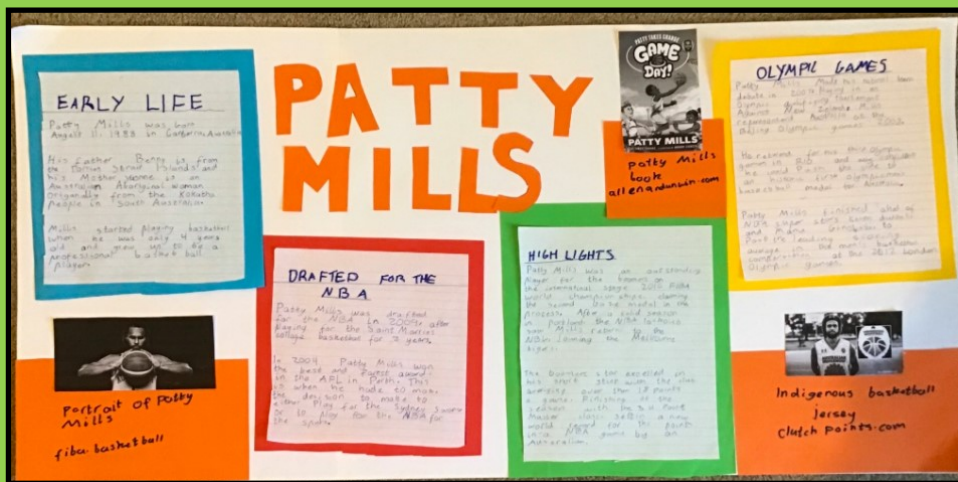 PATTY
MILLS
EARLY LIFE
Patty Mills was born
August 11. 1988 in Canberra, Australia
His father Benny is from
the Torres Strait Islands and
his Mother Yvonne is an
Australian Aboriginal woman
originally from the Kokatha
People in South Australia.
Mills started playing basketball
when he was only 4 years
old and grew up to be a
professional basket ball
player.
Portrait of Patty
Mills
fiba.basketball
DRAFTED FOR THE
NBA
Patty Mills was drafted
for the NBA in 2009 after
playing for the Saint Maries
college basketball for 2 years.
In 2004 Patty Mills won
the best and fairest award
in the AFL in Perth. This
is when he made to make
the decision to make to
either Play for the Sydney Swans
or to play for the NBA for
the
GAME
DAY!
PATTY MILLS
Patty Mills
book
allenandunwin.com
HIGH LIGHTS
Patty Mills was an outstanding
player for the
the international stage 2010 FIBA
world championships claiming
the second in the
process. After a solid season
in Portland the NBA
saw Mills return to the
NBL joining the Melbourne
tigers.
The boomers star excelled in
his short stint with the
averaging over than 18 points
a game. Finishing of the
season with
a new
world record for the points
in a NBA game by an
Australian.
OLYMPIC GAMES
Patty Mills
debute in 2007 Playing in an
Olympic qualifying tournament
Against New Zealand Mills
represented Australia at the
Beijing Olympic games 2008.
He returned for
games in Rio and
Patty Mills finished ahead of
NBA super stars
and
Post the leading scoring
average in the men's basketball
competition at the 2012 London
Olympic games.
Indigenous basketball
jersey
Clutch points.com